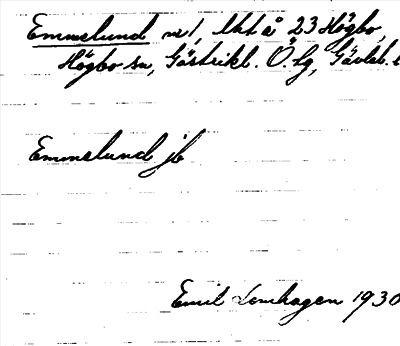 Emmelund nr 1, lht å 23 Högbo,
Högbo sn, Gästrikl. Ö. lg, Gävleb. l
Emmelund jb
Emil Lomhagen 1930